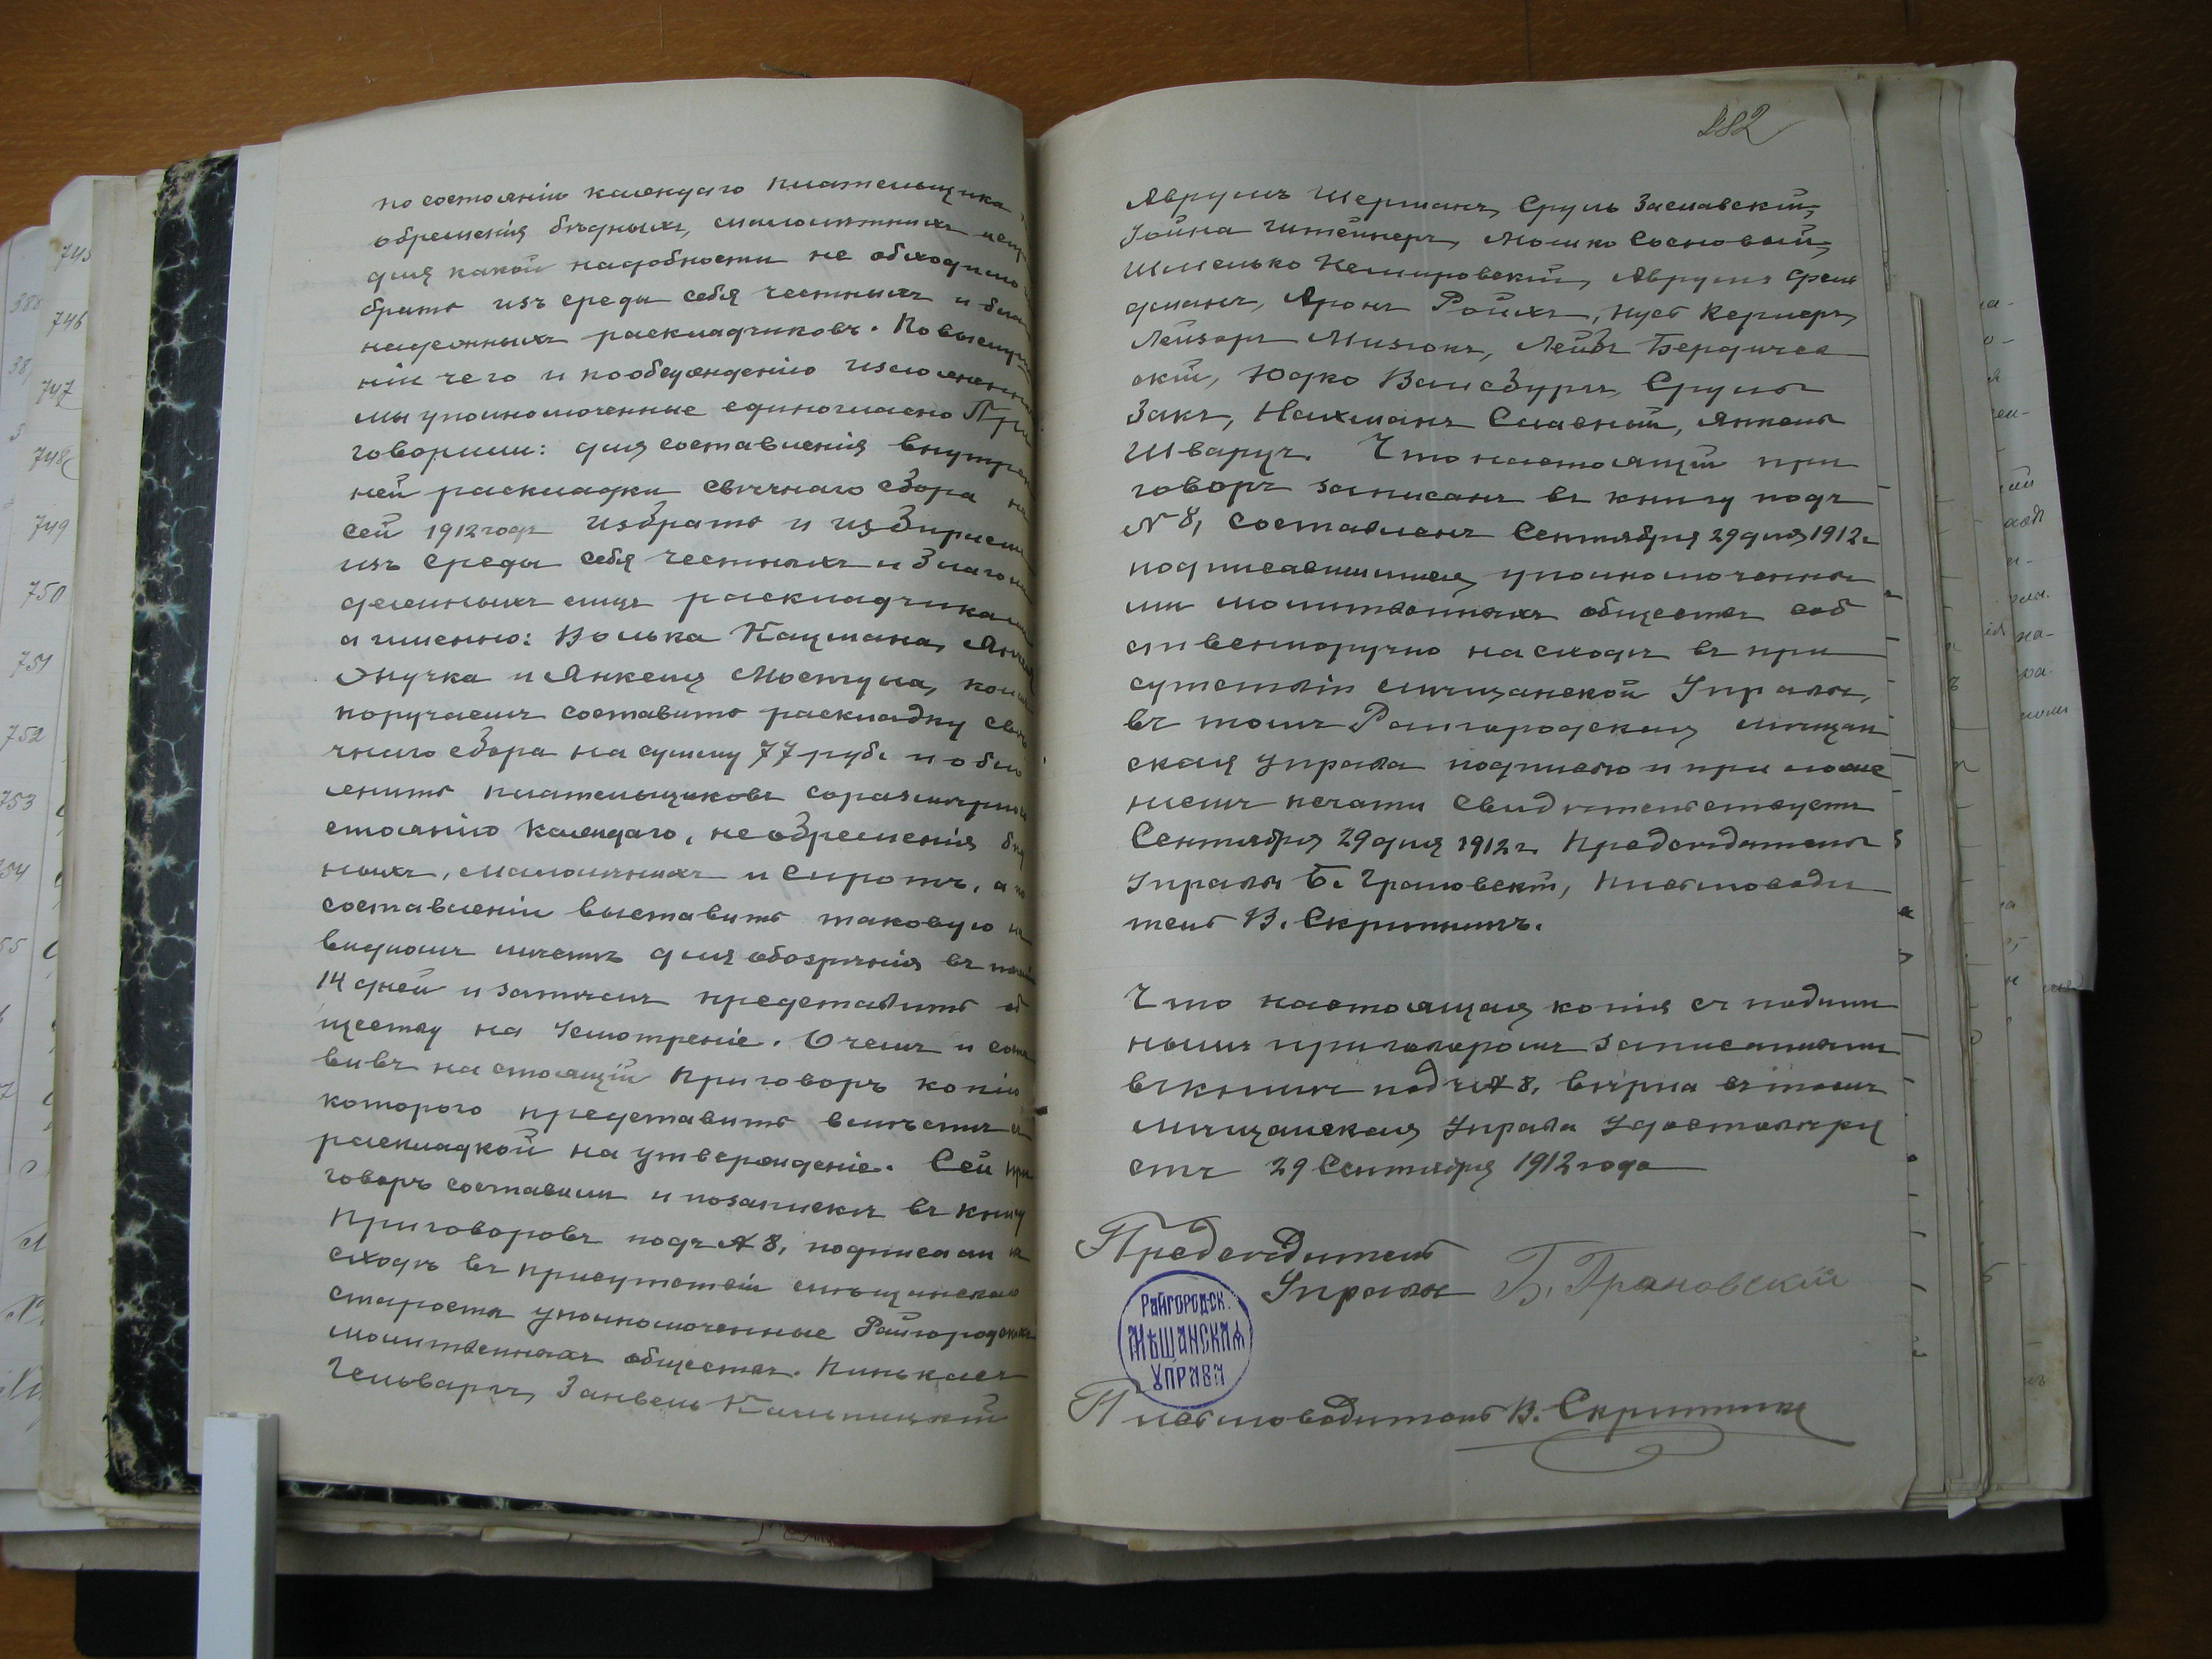 по состоянію каждаго плательщика,
обременія бѣдныхъ, малолѣтнихъ
для какой надобности не обходимо
брать изъ среды себя честныхъ и бла
надежныхъ раскладчиковъ. По выслуша
ніи чего и по обсужденію изложеннаго
мы уполномоченные единогласно При
говорили: для составленія внутрен
ней раскладки свѣчнаго сбора на
сей 1912 годъ избрать и избираемъ
изъ среды себя честныхъ и благона
дежныхъ лицъ раскладчиками
а именно: Волька Кацмана, Янкеля
Онучка и Янкеля Мостула, коимъ
поручаемъ составить раскладку свѣ
чнаго сбора на сумму 77 руб. и обло
жить плательщиковъ соразмѣрно со
стоянію каждаго, не обременія бѣд
ныхъ, малолѣтнихъ и сиротъ, а по
составленіи выставить таковую на
видномъ мѣстѣ для обозрѣнія въ теченіи
14 дней и затѣмъ представить об
ществу на Усмотреніе. О чемъ и соста
вивъ настоящій Приговоръ копію
которого представить вмѣстѣ съ
раскладкой на утвержденіе. Сей при
говоръ составили и по запискѣ въ книгу
Приговоровъ подъ № 8, подписали на
сходѣ въ присутствіи мѣщанскаго
старосты уполномоченные Райгородскихъ
молитвенныхъ обществъ. Пинькасъ
Гельваргъ, Занвель Кальницкій
282
Аврумъ Шерманъ, Сруль Заславскій,
Іойна Штейнеръ, Мошко Сосновый,
Шмелько Немировскій, Аврумъ Фель
дманъ, Аронъ Ройхъ, Нусъ Кернеръ,
Лейзоръ Мизюкъ, Лейбъ Бердичев
скій, Юдко Вайсбургъ, Сруль
Закъ, Нахманъ Славный, Янкель
Шварцъ. Что настоящій при
говоръ записанъ въ книгу подъ
№ 8, составленъ Сентября 29 дня 1912 г.
подписавшимися уполномоченны
ми молитвенныхъ обществъ соб
ственноручно на сходѣ въ при
сутствіи мѣщанской Управы,
въ томъ Райгородская мѣщан
ская управа подписью и приложе
ніемъ печати свидѣтельствуетъ
Сентября 29 дня 1912 г. Предсѣдатель
Управы Б. Грановскій, Письмоводи
тель В. Скрипникъ.
Что настоящая копія съ подлин
нымъ приговоромъ записаннымъ
въ книгѣ подъ № 8, вѣрна въ томъ
мѣщанская Управа Удостовѣря
етъ 29 Сентября 1912 года
Предсѣдатель
Управы Б. Грановскій
Райгородск.
Мѣщанская
Управа
Письмоводитель В. Скрипникъ
745
746
747
748
749
750
751
752
753